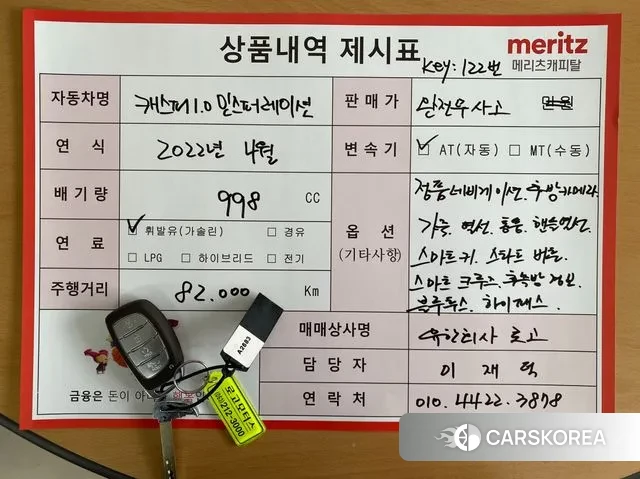 상품내역 제시표
meritz
메리츠캐피탈
Key: 122번
자동차명
캐스퍼 1.0 밀스터레이션
판매가
실전우사고
만원
연 식
2022년 4월
변속기
AT(자동) MT(수동)
배기량
998 CC
옵 션
(기타사항)
정품네비게이션. 후방카메라.
가죽. 열선. 통풍. 핸들열선.
스마트키. 스타트 버튼.
스마트 크루즈. 후측방 경보.
블루투스. 하이패스.
연 료
휘발유(가솔린) 경유
LPG 하이브리드 전기
주행거리
82.000 Km
매매상사명
유한회사 로고
담 당 자
이 재 덕
연 락 처
010. 4422. 3878
금융은 돈이 아
A2883
로고모터스
212-3000
CARSKOREA